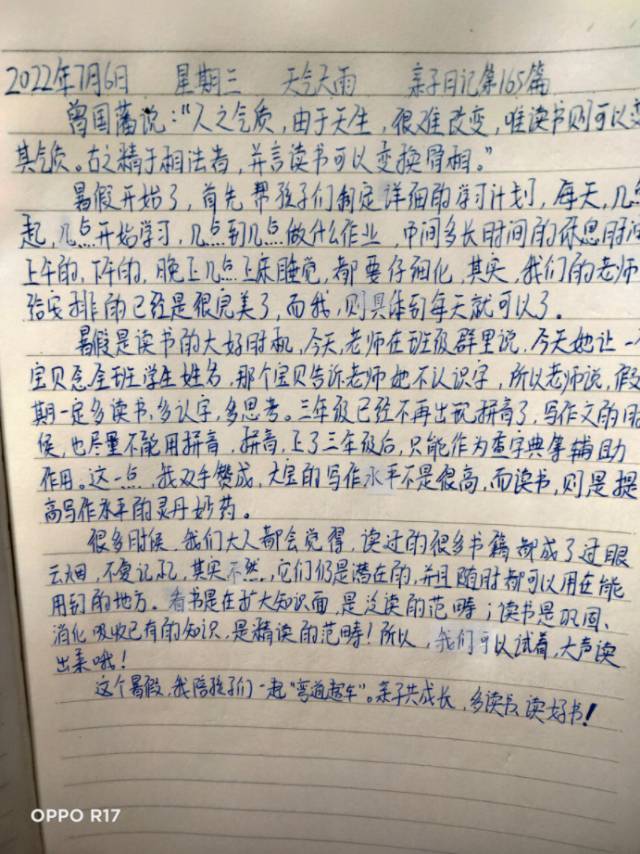 2022年7月6日 星期三 天气大雨 亲子日记第165篇
曾国藩说:“人之气质,由于天生,很难改变,唯读书则可以变
其气质。古之精于相法者,并言读书可以变换骨相。”
暑假开始了,首先帮孩子们制定详细的学习计划,每天,几点
起,几点开始学习,几点到几点做什么作业,中间多长时间的休息时间
上午的,下午的,晚上几点上床睡觉,都要仔细化,其实,我们的老师
给安排的已经是很完美了,而我,则具体到每天就可以了。
暑假是读书的大好时机,今天,老师在班级群里说,今天她让一
宝贝念全班学生姓名,那个宝贝告诉老师她不认识字,所以老师说,假
期一定多读书,多认字,多思考。三年级已经不再出现拼音了,写作文的时
候,也尽量不能用拼音,拼音,上了三年级后,只能作为查字典等辅助
作用。这一点,我双手赞成,大宝的写作水平不是很高,而读书,则是提
高写作水平的灵丹妙药。
很多时候,我们大人都会觉得,读过的很多书籍都成了过眼
云烟,不复记忆,其实不然,它们仍是潜在的,并且随时都可以用在能
用到的地方。看书是在扩大知识面,是泛读的范畴;读书是巩固、
消化吸收已有的知识,是精读的范畴!所以,我们可以试着,大声读
出来哦!
这个暑假,我陪孩子们一起“弯道超车”。亲子共成长,多读书,读好书!
OPPO R17